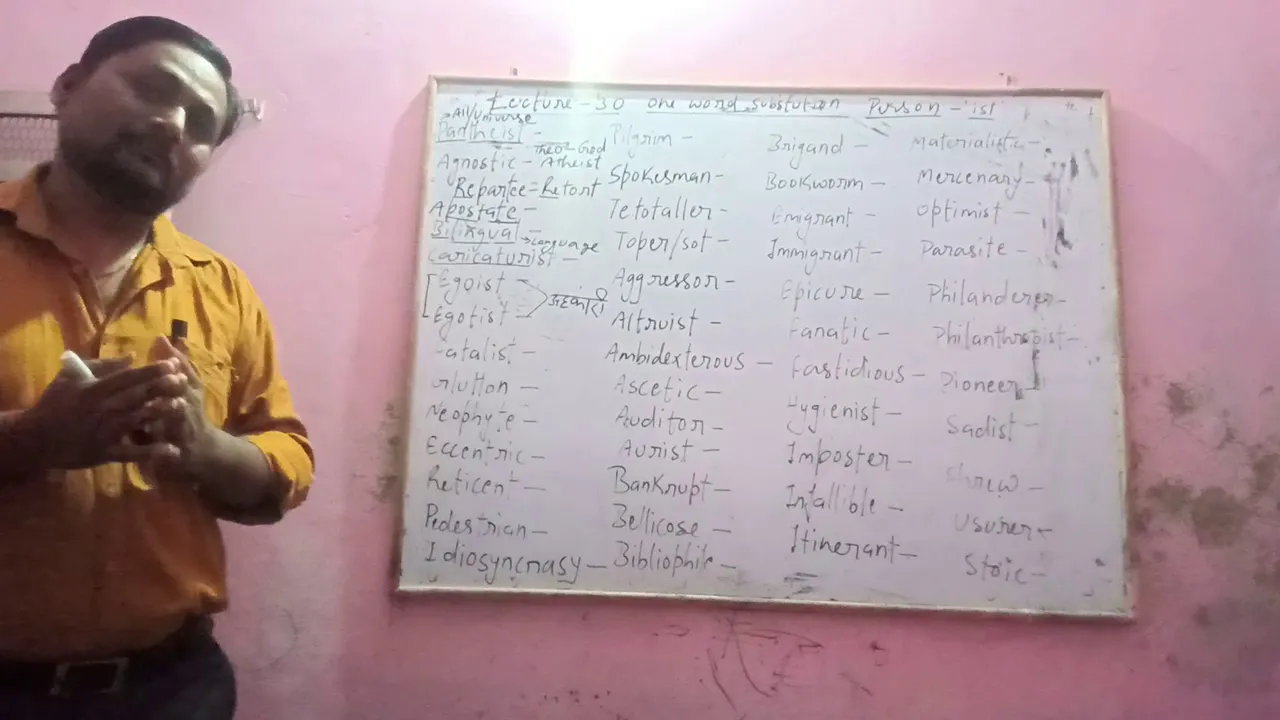 Lecture - 30 one word substution Person - 'ist'
All/universe
Pantheist -
Theo = God
Agnostic - Atheist
Repartee = Retort
Apostate -
Bilingual -
→ Language
Caricaturist -
Egoist -
अहंकारी
Egotist -
Fatalist -
Glutton -
Neophyte -
Eccentric -
Reticent -
Pedestrian -
Idiosyncrasy -
Pilgrim -
Spokesman -
Tetotaller -
Toper/sot -
Aggressor -
Altruist -
Ambidexterous -
Ascetic -
Auditor -
Aurist -
Bankrupt -
Bellicose -
Bibliophile -
Brigand -
Bookworm -
Emigrant -
Immigrant -
Epicure -
Fanatic -
Fastidious -
Hygienist -
Imposter -
Infallible -
Itinerant -
Materialistic -
Mercenary -
Optimist -
Parasite -
Philanderer -
Philanthropist -
Pioneer -
Sadist -
Shrew -
Usurer -
Stoic -